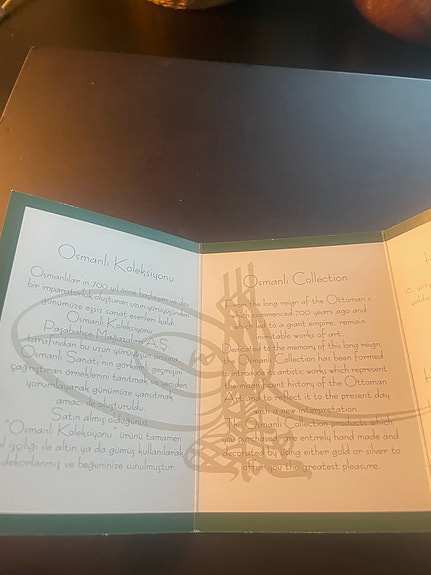 Osmanlı Koleksiyonu
Osmanlılar'ın 700 yıl önce başlayan ve dev
bir imparatorluk oluşturan uzun yürüyüşünden
günümüze eşsiz sanat eserleri kaldı.
Osmanlı Koleksiyonu
Paşabahçe Mağazaları A.Ş.
tarafından bu uzun yürüyüşün anısına
Osmanlı Sanatı'nın görkemli geçmişini
çağrıştıran örneklerini tanıtmak ve yeniden
yorumlayarak günümüze yansıtmak
amacı ile oluşturuldu.
Satın almış olduğunuz
"Osmanlı Koleksiyonu" ürünü tamamen
el işçiliği ile altın ya da gümüş kullanılarak
dekorlanmış ve beğeninize sunulmuştur.
Osmanlı Collection
From the long reign of the Ottoman's
which commenced 700 years ago and
which led to a giant empire, remain
inimitable works of art.
Dedicated to the memory of this long reign,
the Osmanlı Collection has been formed
to introduce artistic works which represent
the magnificent history of the Ottoman
Art and to reflect it to the present day
with a new interpretation.
The Osmanlı Collection products which
you purchased are entirely hand made and
decorated by using either gold or silver to
offer you the greatest pleasure.